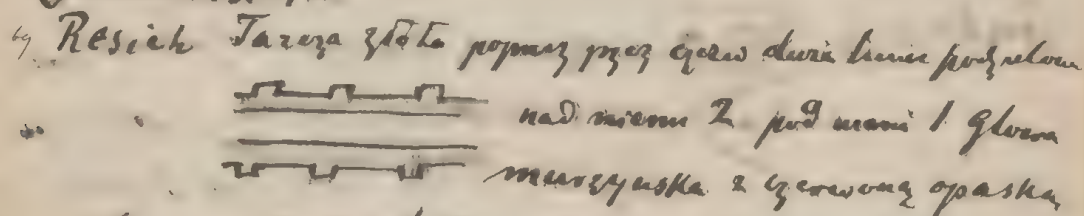 69 Resich Tarcza złota poprzez przez czerw dwie linie
nad niemi 2 pod niemi 1 Głowa
murzyńska z czerwoną opaską